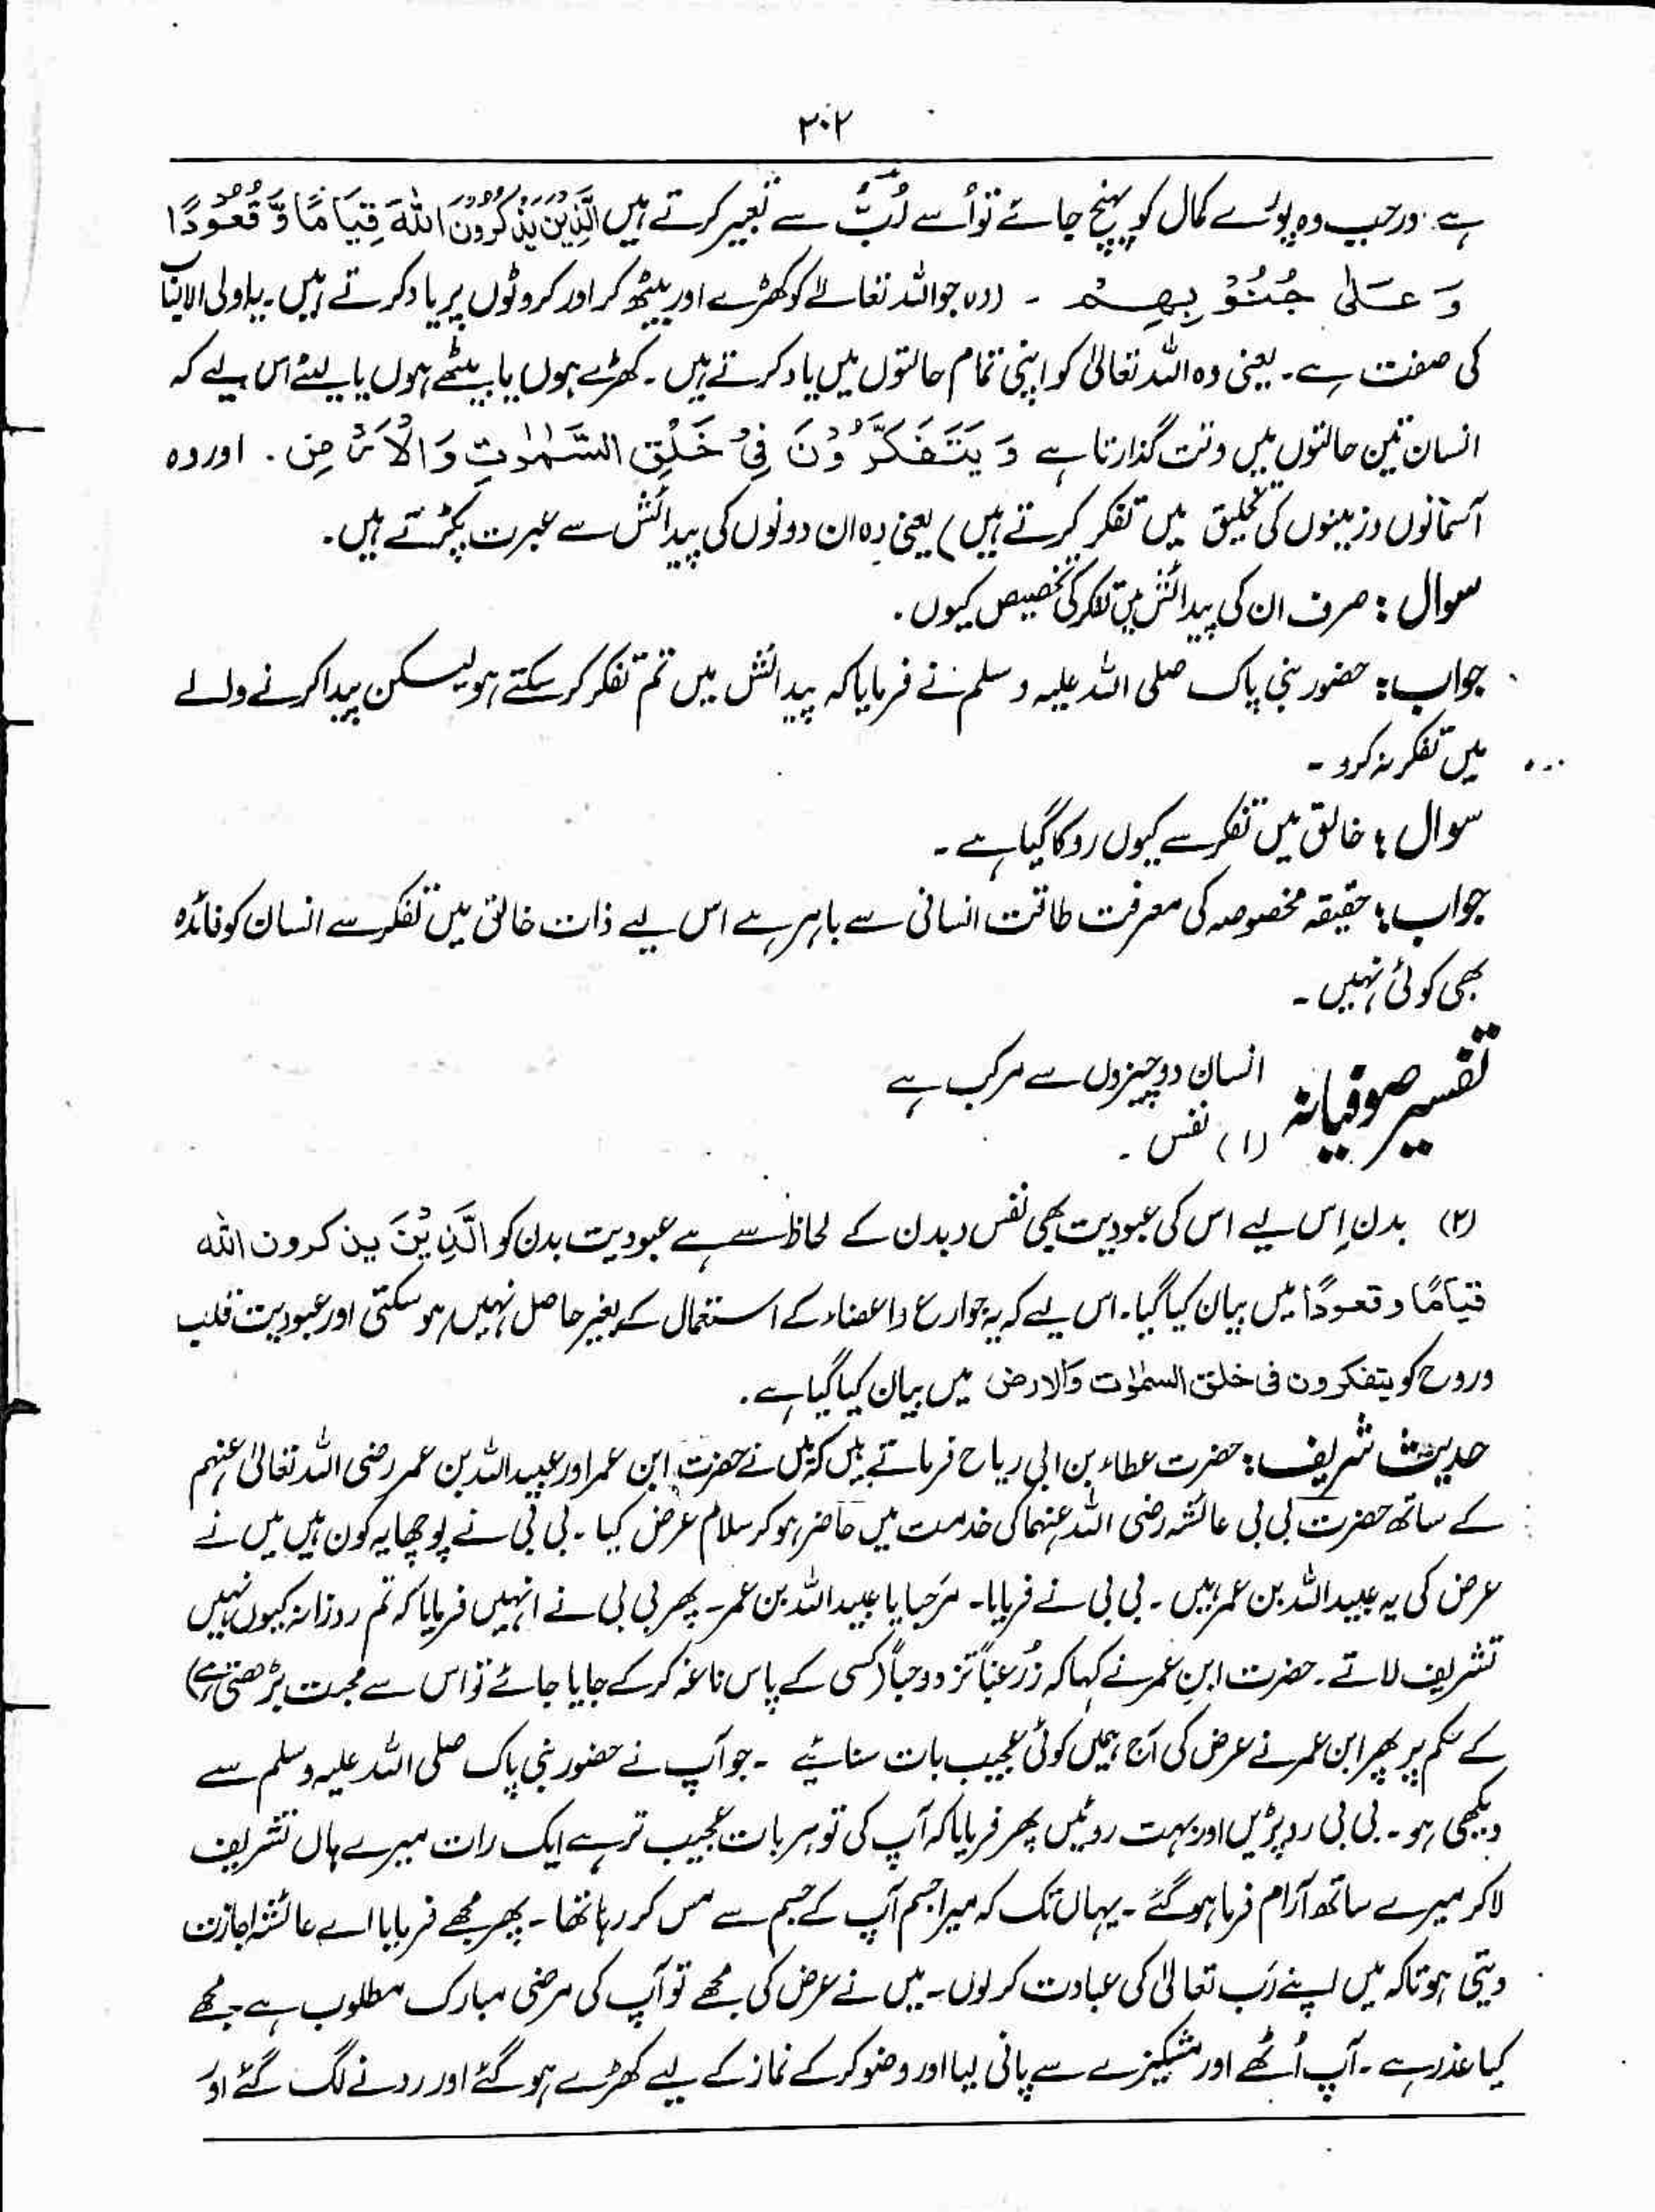 ۳۰۲
ہے۔ اور جب وہ پورے کمال کو پہنچ جائے تو اُسے لُبّ سے تعبیر کرتے ہیں الَّذِیْنَ یَذْكُرُوْنَ اللّٰهَ قِیَامًا وَّ قُعُوْدًا
وَ عَلٰی جُنُوْ بِهِمْ ۔ (وہ جو اللہ تعالےٰ کو کھڑے اور بیٹھ کر اور کروٹوں پر یاد کرتے ہیں۔ یہ اولی الالباب
کی صفت ہے۔ یعنی وہ اللہ تعالیٰ کو اپنی تمام حالتوں میں یاد کرتے ہیں۔ کھڑے ہوں یا بیٹھے ہوں یا لیٹے اس لیے کہ
انسان تین حالتوں میں وقت گذارتا ہے وَ یَتَفَكَّرُوْنَ فِیْ خَلْقِ السَّمٰوٰتِ وَ الْاَرْضِ ۔ اور وہ
آسمانوں و زمینوں کی تخلیق میں تفکر کرتے ہیں) یعنی وہ ان دونوں کی پیدائش سے عبرت پکڑتے ہیں۔
سوال : صرف ان کی پیدائش میں تفکر کی تخصیص کیوں۔
جواب : حضور نبی پاک صلی اللہ علیہ وسلم نے فرمایا کہ پیدائش میں تم تفکر کر سکتے ہو لیسکن پیدا کرنے والے
میں تفکر نہ کرو ۔
سوال : خالق میں تفکر سے کیوں روکا گیا ہے ۔
جواب : حقیقہ مخصوصہ کی معرفت طاقت انسانی سے باہر ہے اس لیے ذات خالق میں تفکر سے انسان کو فائدہ
بھی کوئی نہیں ۔
تفسیر صوفیانہ انسان دو چیزوں سے مرکب ہے
(۱) نفس ۔
(۲) بدن اِس لیے اس کی عبودیت بھی نفس و بدن کے لحاظ سے ہے عبودیت بدن کو الَّذِیْنَ یذکرون اللہ
قیامًا و قعودًا میں بیان کیا گیا۔ اس لیے کہ یہ جوارع و اعضاء کے استعمال کے بغیر حاصل نہیں ہو سکتی اور عبودیت قلب
و روح کو یتفکرون فی خلق السمٰوٰت والارض میں بیان کیا گیا ہے۔
حدیث شریف : حضرت عطاء بن ابی ریاح فرماتے ہیں کہ میں نے حضرت ابن عمر اور عبیداللہ بن عمر رضی اللہ تعالیٰ عنہم
کے ساتھ حضرت بی بی عائشہ رضی اللہ عنہما کی خدمت میں حاضر ہو کر سلام عرض کیا ۔ بی بی نے پوچھا یہ کون ہیں میں نے
عرض کی یہ عبیداللہ بن عمر ہیں ۔ بی بی نے فرمایا۔ مرحبا یا عبیداللہ بن عمر۔ پھر بی بی نے انہیں فرمایا کہ تم روزانہ کیوں نہیں
تشریف لاتے ۔ حضرت ابن عمر نے کہا کہ زُرغباً تزدد حباً (کسی کے پاس ناغہ کر کے جایا جائے تو اس سے محبت بڑھتی ہے)
کے حکم پر پھر ابن عمر نے عرض کی آج ہمیں کوئی عجیب بات سنائیے ۔ جو آپ نے حضور نبی پاک صلی اللہ علیہ وسلم سے
دیکھی ہو ۔ بی بی رو پڑیں اور بہت روئیں پھر فرمایا کہ آپ کی تو ہر بات عجیب تر ہے ایک رات میرے ہاں تشریف
لا کر میرے ساتھ آرام فرما ہو گئے ۔ یہاں تک کہ میرا جسم آپ کے جسم سے مس کر رہا تھا ۔ پھر مجھے فرمایا اے عائشہ اجازت
دیتی ہو تاکہ میں اپنے رب تعالیٰ کی عبادت کر لوں ۔ میں نے عرض کی مجھے تو آپ کی مرضی مبارک مطلوب ہے مجھے
کیا عذر ہے ۔ آپ اُٹھے اور مشکیزے سے پانی لیا اور وضو کر کے نماز کے لیے کھڑے ہو گئے اور رونے لگ گئے اور